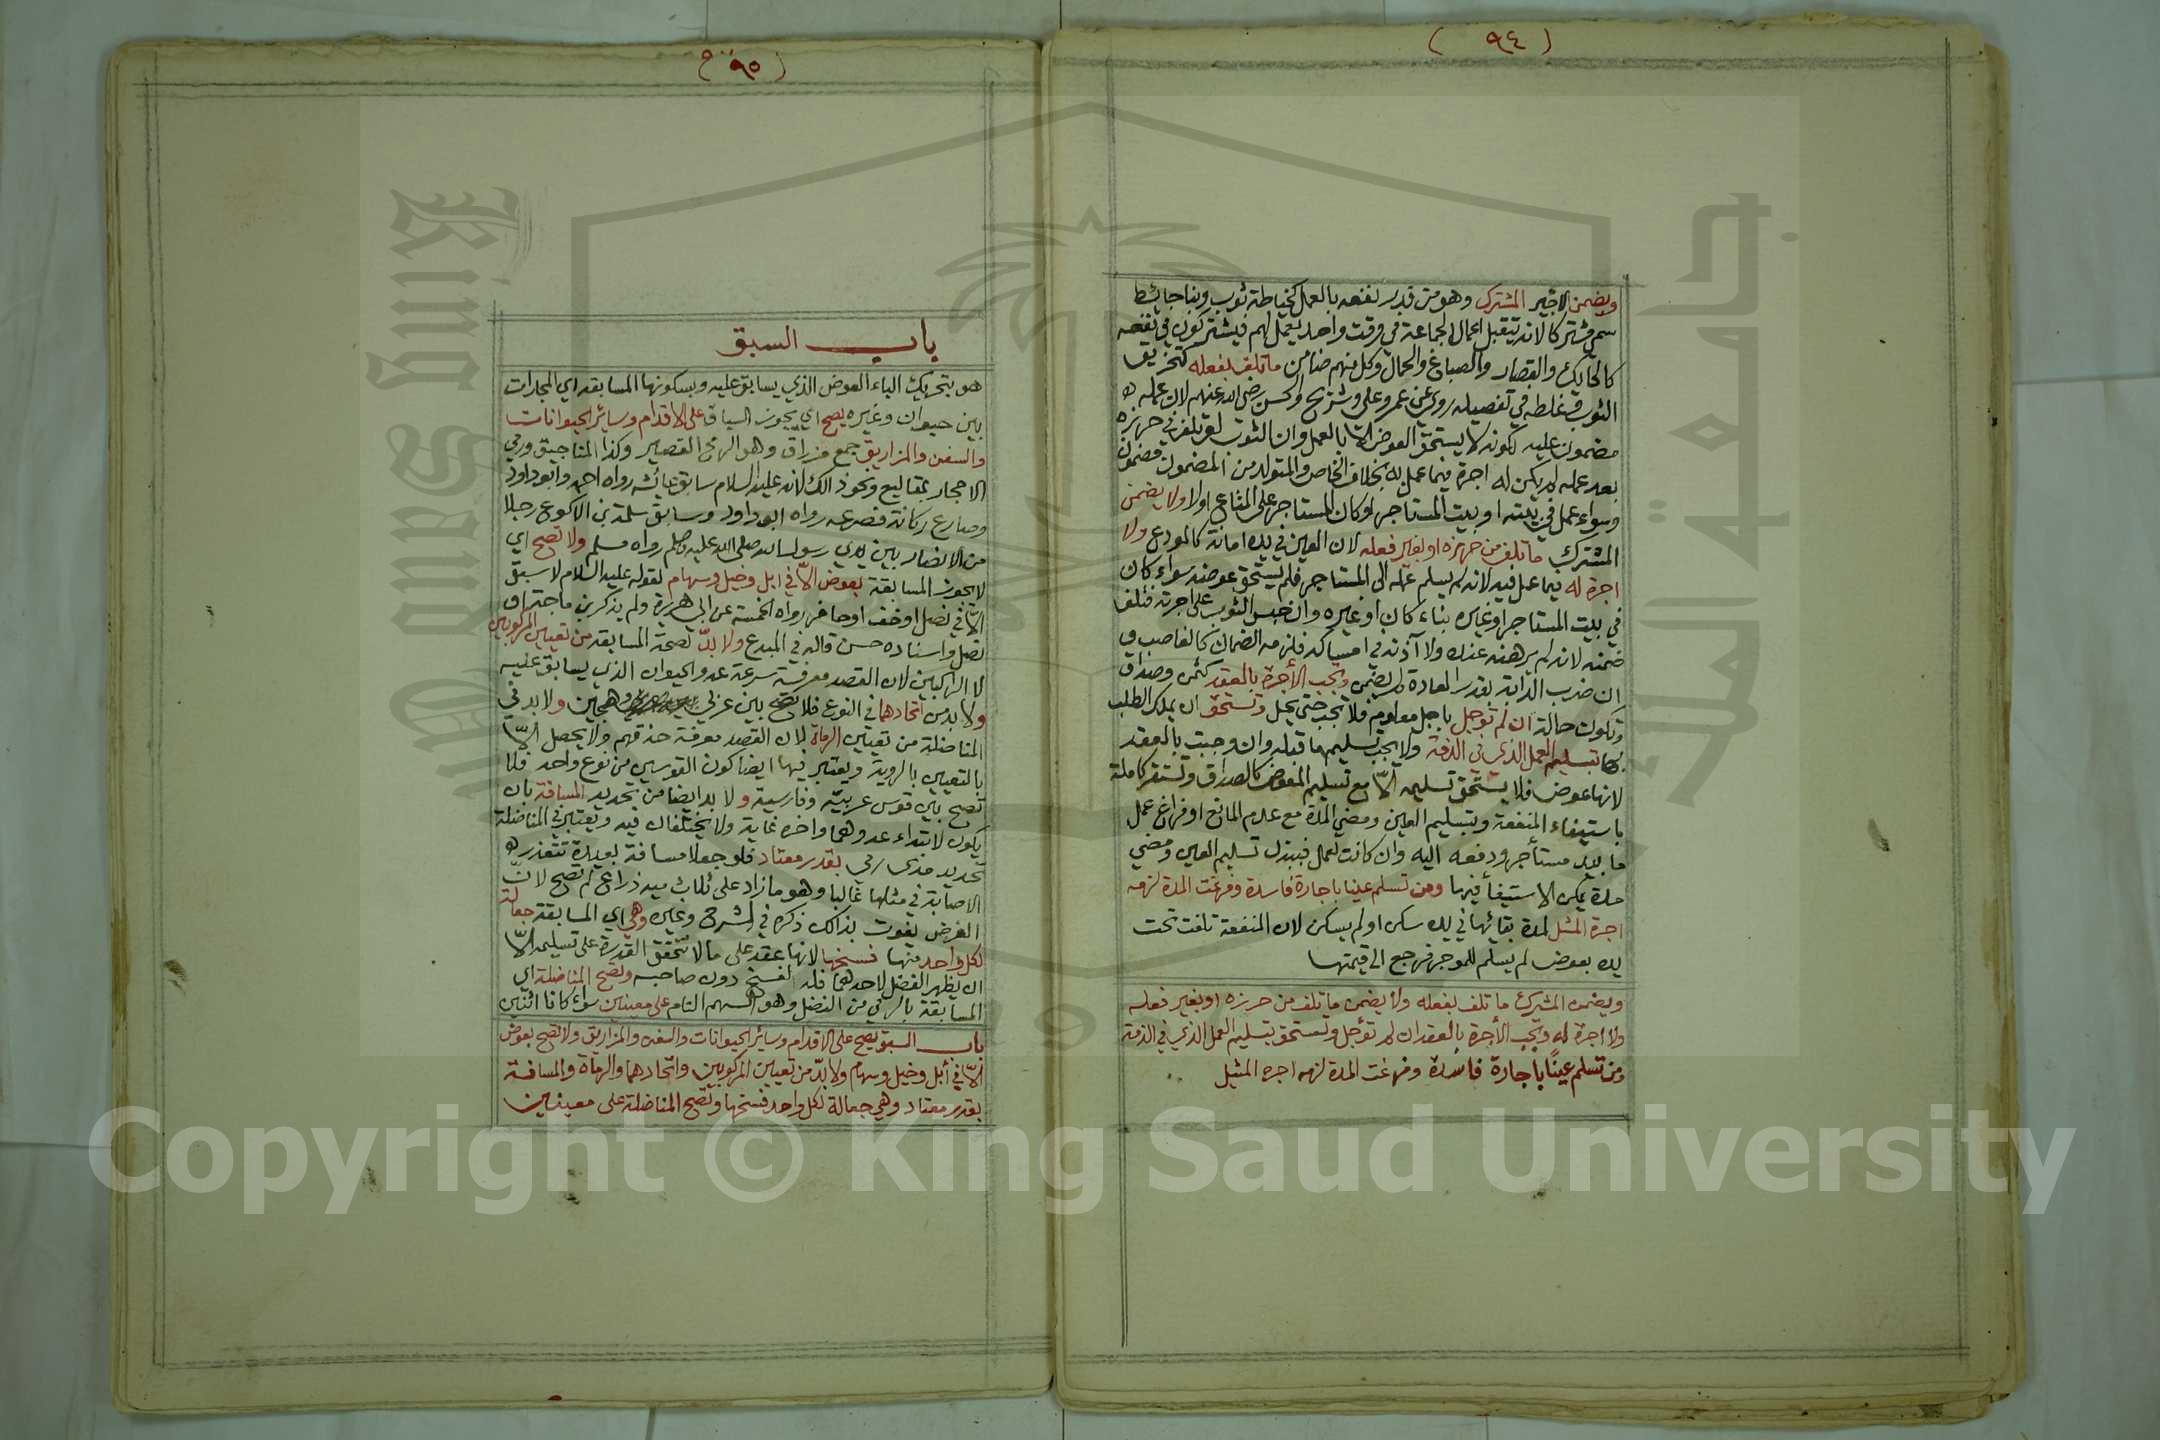 (٩٤)
ويضمن الاجير المشترك وهو من قدر نفعه بالعمل كخياطة ثوب وبناء حائط
سمي مشتركا لانه يتقبل اعمال الجماعة في وقت واحد يعمل لهم فيشتركون في نفعه
كالحايك والقصار والصباغ والحمال وكل منهم ضامن ما تلف بفعله كتخريق
الثوب وغلطه في تفصيله روي عن عمر وعلي وشريح والحسن رضي الله عنهم لان عمله
مضمون عليه لكونه لا يستحق العوض الا بالعمل وان الثوب لو تلف في حرزه
بعد عمله لم يكن له اجرة فيما عمل به بخلاف الخاص والمتولد من المضمون مضمون
وسواء عمل في بيته او بيت المستاجر او كان المستاجر على المتاع اولا ولا يضمن
المشترك ما تلف من حرزه او بغير فعله لان العين في يده امانة كالمودع ولا
اجرة له فيما عمل فيه لانه لم يسلم عمله الى المستاجر فلم يستحق عوضه سواء كان
في بيت المستاجر او غيره بناء كان او غيره وان حبس الثوب على اجرته فتلف
ضمنه لانه لم يرهنه عنده ولا آذنه في امساكه فلزمه الضمان كالغاصب و
ان ضرب الدابة بقدر العادة لم يضمن وتجب الأجرة بالعقد كثمن وصداق
وتكون حالة ان لم تؤجل باجل معلوم فلا تجب حتى يحل وتستحق ان يملك الطلب
بها بتسليم العمل الذي في الذمة ولا يجب تسليمها قبله وان وجبت بالعقد
لانها عوض فلا يستحق تسليمه الاّ مع تسليم المعوض كالصداق وتستقر كاملة
باستيفاء المنفعة وبتسليم العين ومضي المدة مع عدم المانع او فراغ عمل
ما بيد مستأجر ودفعه اليه وان كانت لعمل فببذل تسليم العين ومضي
مدة يمكن الاستيفأ فيها ومن تسلم عينا باجارة فاسدة وفرغت المدة لزمه
اجرة المثل لمدة بقائها في يده سكن او لم يسكن لان المنفعة تلفت تحت
يده بعوض لم يسلم للموجر فرجع الى قيمتها
ويضمن المشترك ما تلف بفعله ولا يضمن ما تلف من حرزه او بغير فعله
ولا اجرة له وتجب الأجرة بالعقد ان لم تؤجل وتستحق بتسليم العمل الذي في الذمة
ومن تسلم عينًا بأجارة فاسدة وفرغت المدة لزمه اجرة المثيل
(٩٥)
باب السبق
هو بتحريك الباء العوض الذي يسابق عليه وبسكونها المسابقة اي المجارات
بين حيوان وغيره يصح اي يجوز السباق على الاقدام وسائر الحيوانات
والسفن والمزاريق جمع مزراق وهو الرمح القصير وكذا المناجيق ورمي
الاحجار بمقاليع ونحو ذالك لانه عليه السلام سابق عائشه رواه احمد وابو داود
وصارع ركانة فصرعه رواه ابو داود وسابق سلمة بن الاكوع رجلا
من الانصار بين يدي رسول الله صلى الله عليه وسلم رواه مسلم ولا تصح اي
لا تجوز المسابقة بعوض الاّ في ابل وخيل وسهام لقوله عليه السلام لا سبق
الاّ في نصل او خف او حافر رواه الخمسة عن ابي هريرة ولم يذكر بن ماجة او
نصل واسناده حسن قاله في المبدع ولا بدّ لصحة المسابقة من تعيين المركوبين
لا الراكبين لان القصد معرفة سرعة عدو الحيوان الذي يسابق عليه
ولا بد من اتحادهما في النوع فلا تصح بين عربي وهجين ولا بد في
المناضلة من تعيين الرماة لان القصد معرفة حذقهم ولا يحصل الاّ
بالتعيين بالروية ويعتبر فيها ايضا كون القوسين من نوع واحد فلا
تصح بين قوس عربية وفارسية ولا بد ايضا من تحديد المسافة بان
يكون لابتداء عدوهما واخره غاية ولا يختلفان فيه ويعتبر في المناضلة
تحديد مدى رمي بقدر معتاد فلو جعلا مسافة بعيدة تتعذر
الاصابة في مثلها غالبا وهو ما زاد على ثلاث ميه ذراع لم تصح لانّ
الغرض يفوت بذالك ذكره في الشرح وغيره وهي اي المسابقة جعالة
لكل واحد منها فسخها لانها عقد على ما لا تتحقق القدرة على تسليمه الاّ
ان يظهر الفضل لاحدهما فله الفسخ دون صاحبه وتصح المناضلة اي
المسابقة بالرمي من النضل وهو السهم التام على معينين سواء كانا اثنين
باب السبق يصح على الاقدام وسائر الحيوانات والسفن والمزاريق ولا تصح بعوض
الاّ في أبل وخيل وسهام ولا بدّ من تعيين المركوبين واتحادهما والرماة والمسافة
بقدر معتاد وهي جعالة لكل واحد فسخها وتصح المناضلة على معينين
King Saud University
جامعة الملك سعود
Copyright © King Saud University